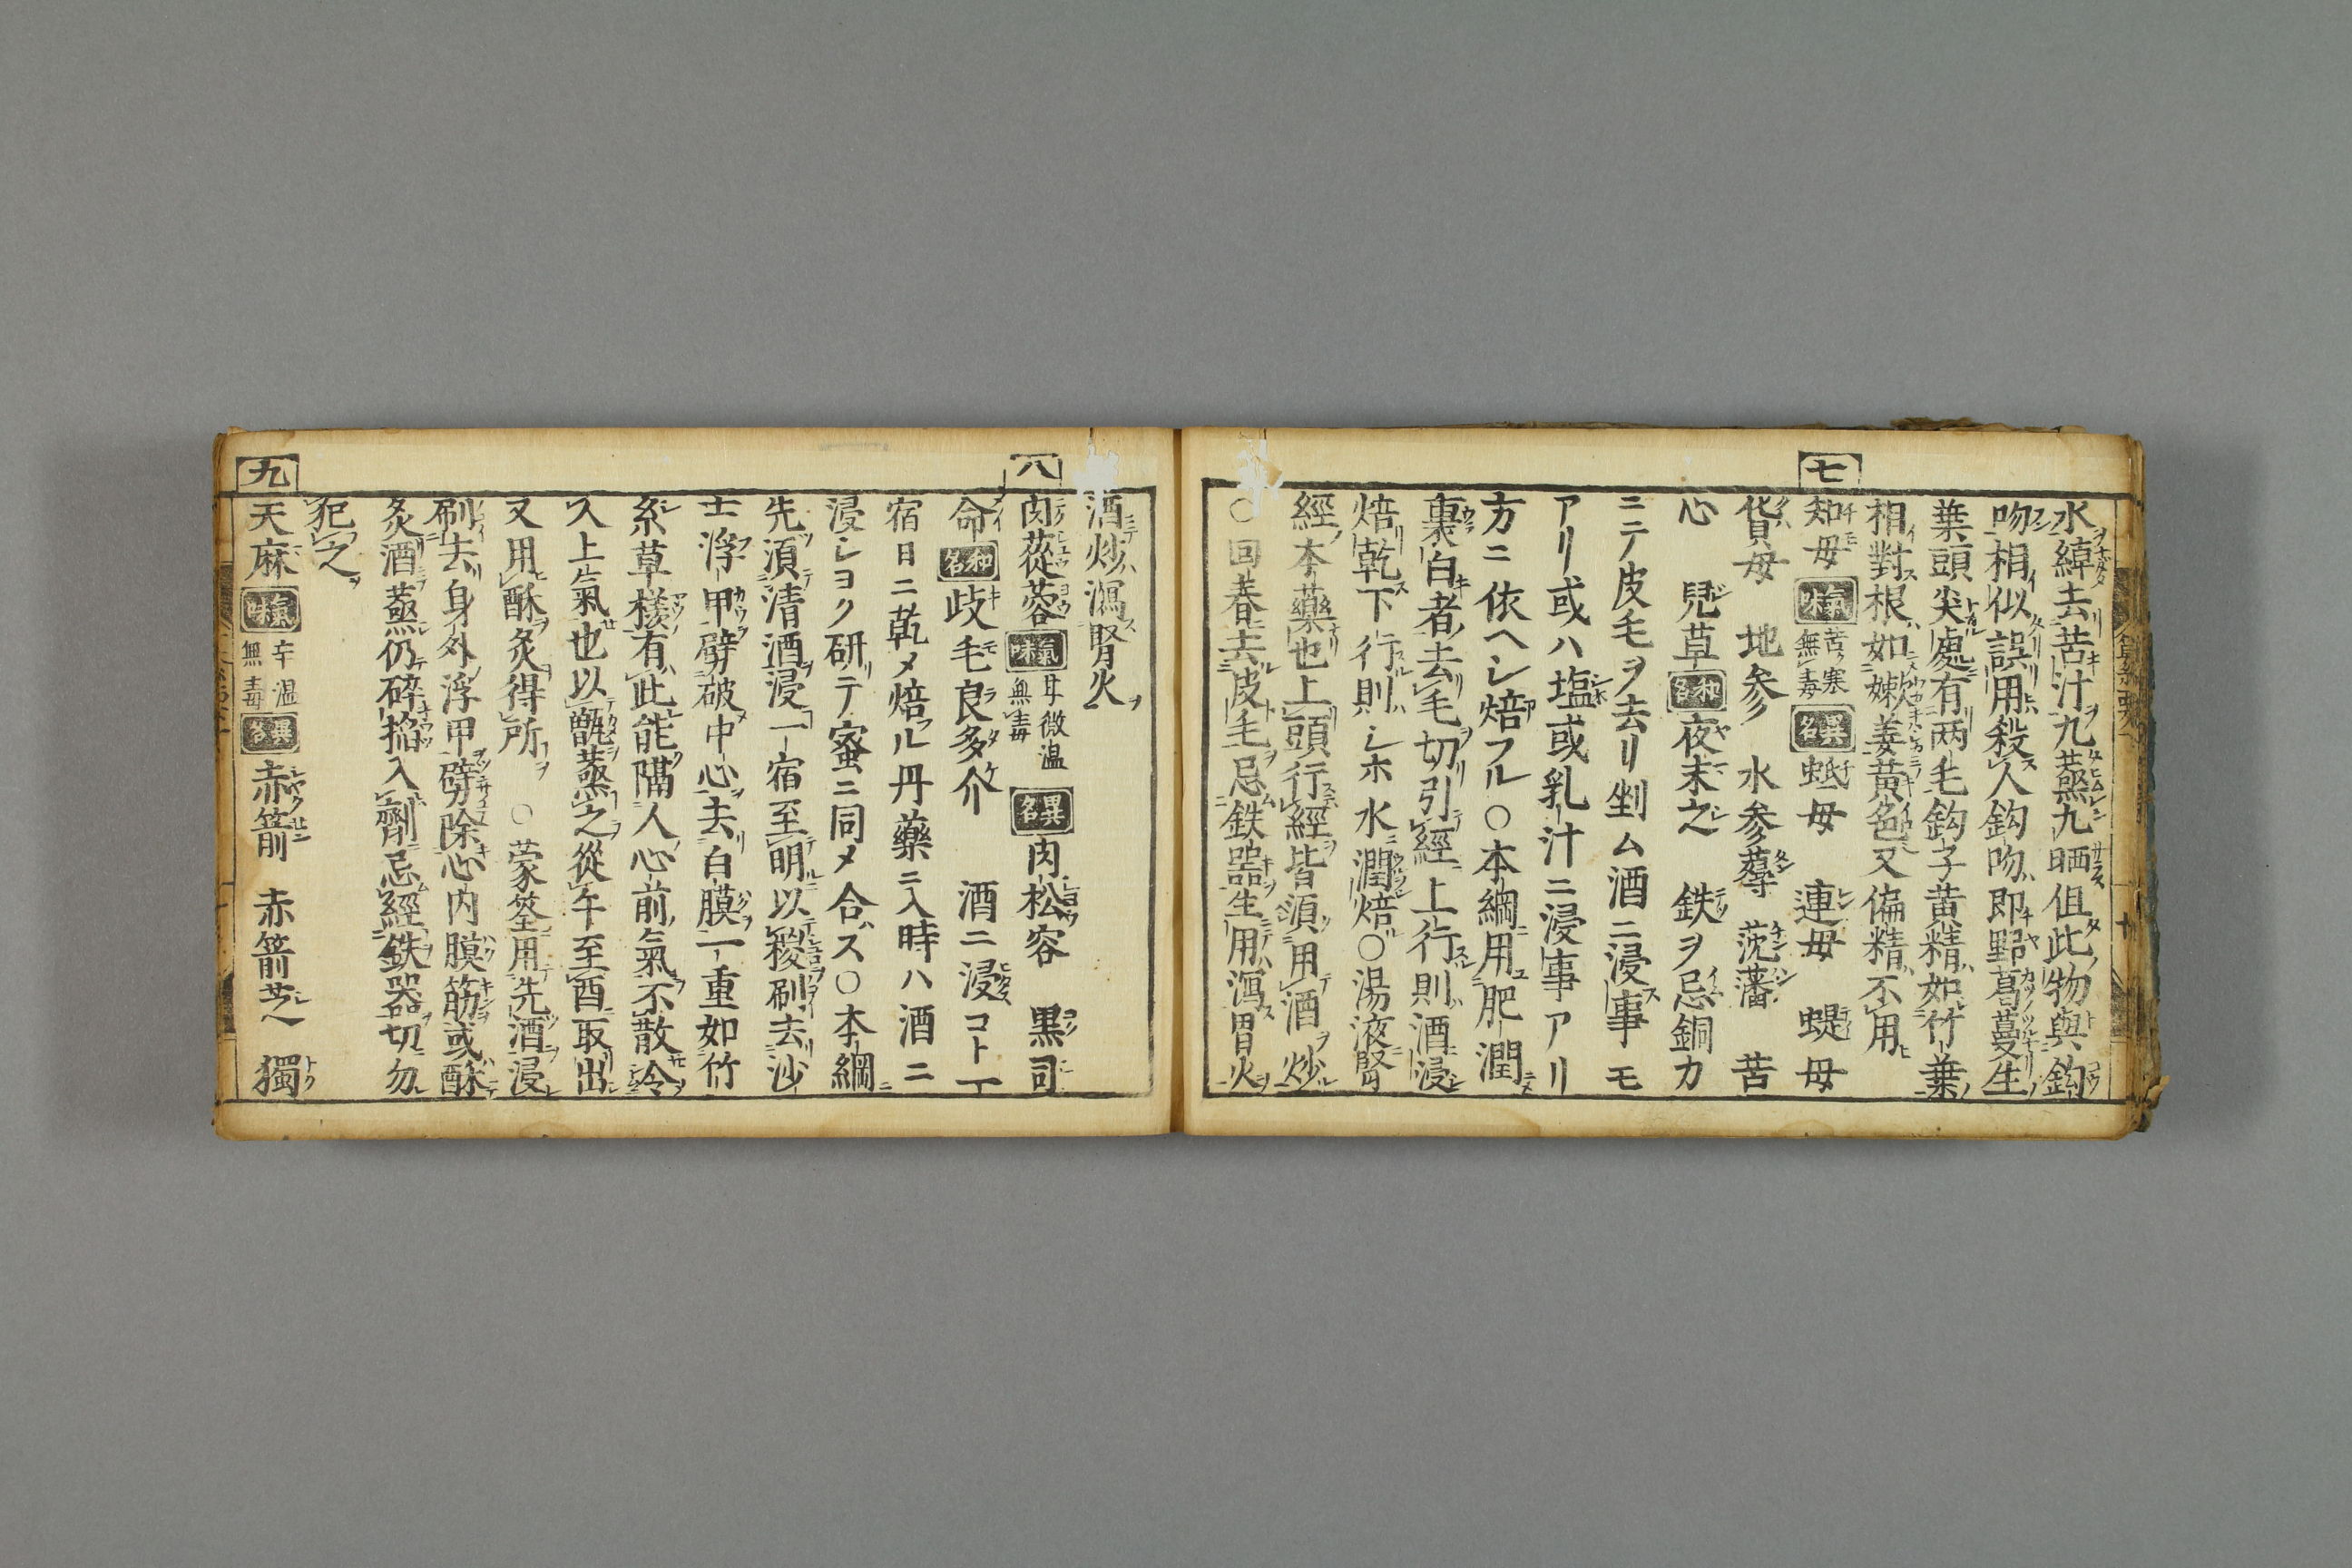 水綽去苦汁九蒸九晒但此物與鈎
吻相似誤用殺人鈎吻即野葛蔓生
葉頭尖處有両毛鈎子黄精如竹葉
相對根如嫩姜黄色又偏精不用
七
知母 氣味 苦寒無毒 異名 蚳母 連母 蝭母
貨母 地参 水参 蕁 莐藩 苦
心 兒草 和名 夜末之 鉄ヲ忌銅カ
ニテ皮毛ヲ去リ剉ム酒ニ浸事モ
アリ或ハ塩或乳汁ニ浸事アリ
方ニ依ヘシ焙フル○本綱用肥潤
裏白者去毛切引經上行則酒浸
焙乾下行則シホ水潤焙○湯液腎
經本藥也上頭行經皆須用酒炒
○回春去皮毛忌鉄器生用瀉胃火
酒炒瀉腎火
八
肉蓯蓉 氣味 甘微温無毒 異名 肉松容 黒司
命 和名 歧毛良多介 酒ニ浸コト一
宿日ニ乾メ焙ル丹藥ニ入時ハ酒ニ
浸シヨク研テ蜜ニ同メ合ス○本綱
先須清酒浸一宿至明以椶刷去沙
士浮甲劈破中心去白膜一重如竹
糸草樣有此能隔人心前氣不散令
人上氣也以甑蒸之從午至酉取出
又用酥炙得所 ○蒙筌用先酒浸
刷去身外浮甲劈除心内膜筋或酥
炙酒蒸仍碎掐入劑忌經鉄器切勿
犯之
九
天麻 氣味 辛温無毒 異名 赤箭 赤箭芝 獨